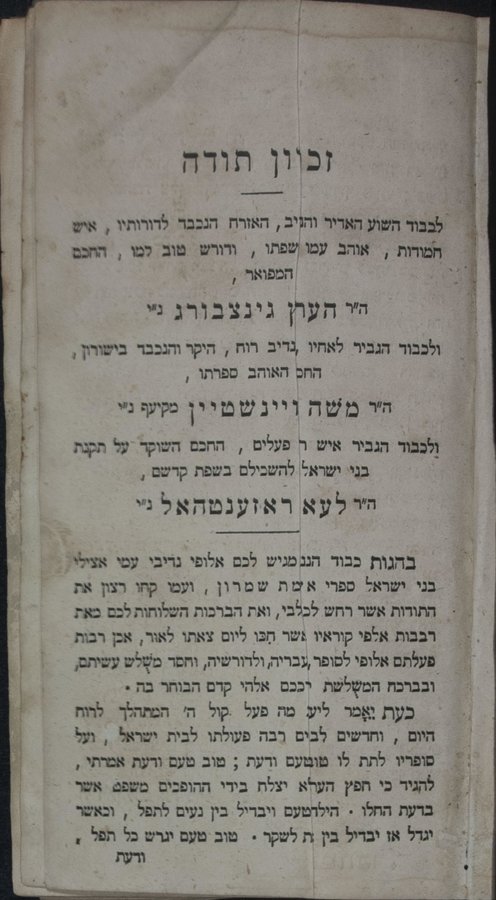 זכרון תודה
לכבוד השוע האדיר והנדיב, האזרח הנכבד לדורותיו, איש
חמודות, אוהב עמו שפתו, ודורש טוב למו, החכם
המפואר,
ה״ר הערץ גינצבורג נ״י
ולכבוד הגביר לאחיו, נדיב רוח, היקר והנכבד בישורון,
החכם האוהב ספרתו,
ה״ר משה וויינשטיין מקיעף נ״י
ולכבוד הגביר איש רב פעלים, החכם השוקד על תקנת
בני ישראל להשכילם בשפת קדשם,
ה״ר לעאן ראזענטהאל נ״י
בהגות כבוד הנני מגיש לכם אלופי נדיבי עמי אצילי
בני ישראל ספרי אשמת שמרון, ועמו קחו רצון את
התודות אשר רחש לכם לבי, ואת הברכות השלוחות לכם מאת
רבבות אלפי קוראיו אשר חכו ליום צאתו לאור, אכן רבות
פעלתם אלופי לסופר עבריה, ולדורשיה, וחסד משלש עשיתם,
ובברכה המשלשת יברככם אלהי קדם הבוחר בה.
כעת יאמר ליעקב מה פעל קול ה׳ המתהלך לרוח
היום, וחדשים לבקרים רבה פעולתו לבית ישראל, ועל
סופריו לתת לו טוב טעם ודעת; טוב טעם ודעת אמרתי,
להגיד כי חפץ הערלא יצלח בידי ההופכים משפט אשר
בדעת החלו. הילד טעם ויבדיל בין נעים לתפל, וכאשר
יגדל אז יבדיל בין אמת לשקר. טוב טעם יגרש כל תפל,
ודעת